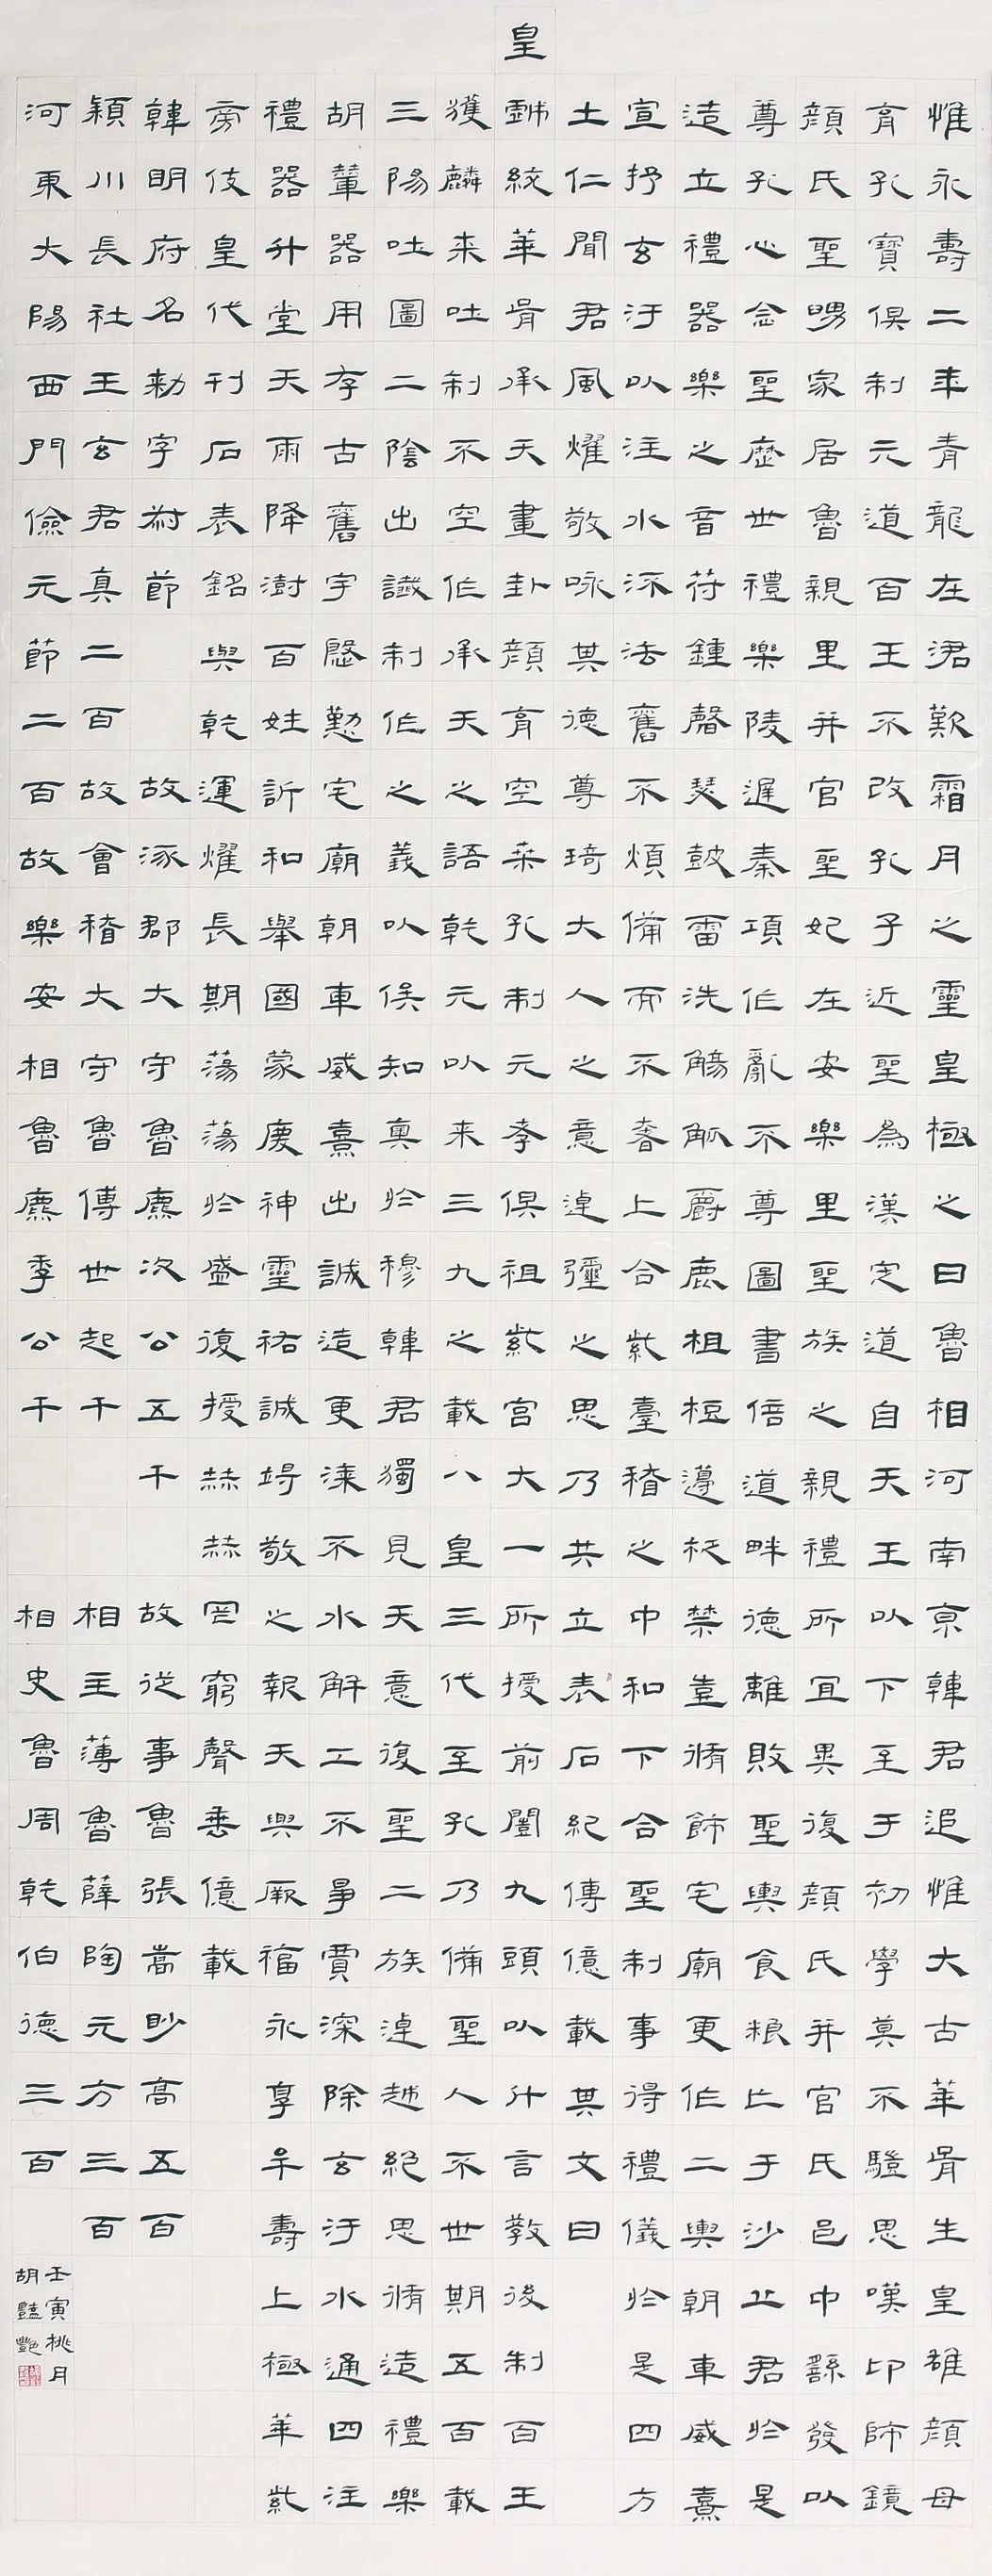 惟永壽二年青龍在涒歎霜月之靈皇極之日魯相河南京韓君追惟大古華胥生皇雄顏母
育孔寶俱制元道百王不改孔子近聖為漢定道自天王以下至于初學莫不驥思嘆卬師鏡
顏氏聖舅家居魯親里并官聖妃在安樂里聖族之親禮所宜異復顏氏并官氏邑中繇發以
尊孔心念聖歷世禮樂陵遲秦項作亂不尊圖書倍道畔德離敗聖輿食糧亡于沙丘君於是
造立禮器樂之音符鍾磬瑟鼓雷洗觴觚爵鹿柤梪籩柉禁壺脩飾宅廟更作二輿朝車威熹
宣抒玄汙以注水流法舊不煩備而不奢上合紫臺稽之中和下合聖制事得禮儀於是四方
土仁聞君風燿敬咏其德尊琦大人之意逴彌之思乃共立表石紀傳億載其文曰
皇戲統華胥承天畫卦顏育空桑孔制元孝俱祖紫宮大一所授前闓九頭以什言教後制百王
獲麟來吐制不空作承天之語乾元以來三九之載八皇三代至孔乃備聖人不世期五百載
三陽吐圖二陰出讖制作之義以俟知奧於穆韓君獨見天意復聖二族逴越絕思脩造禮樂
胡輦器用存古舊宇慇懃宅廟朝車威熹出誠造更漆不水解工不爭賈深除玄汙水通四注
禮器升堂天雨降澍百姓訢和舉國蒙慶神靈祐誠竭敬之報天與厥福永享牟壽上極華紫
旁伎皇代刊石表銘與乾運燿長期蕩蕩於盛復授赫赫罔窮聲垂億載
韓明府名勑字叔節 故涿郡大守魯麃次公五千 故從事魯張嵩眇高五百
潁川長社王玄君真二百 故會稽大守魯傅世起千 相主薄魯薛陶元方三百
河東大陽西門儉元節二百 故樂安相魯麃季公千 相史魯周乾伯德三百
壬寅桃月
胡豔艷